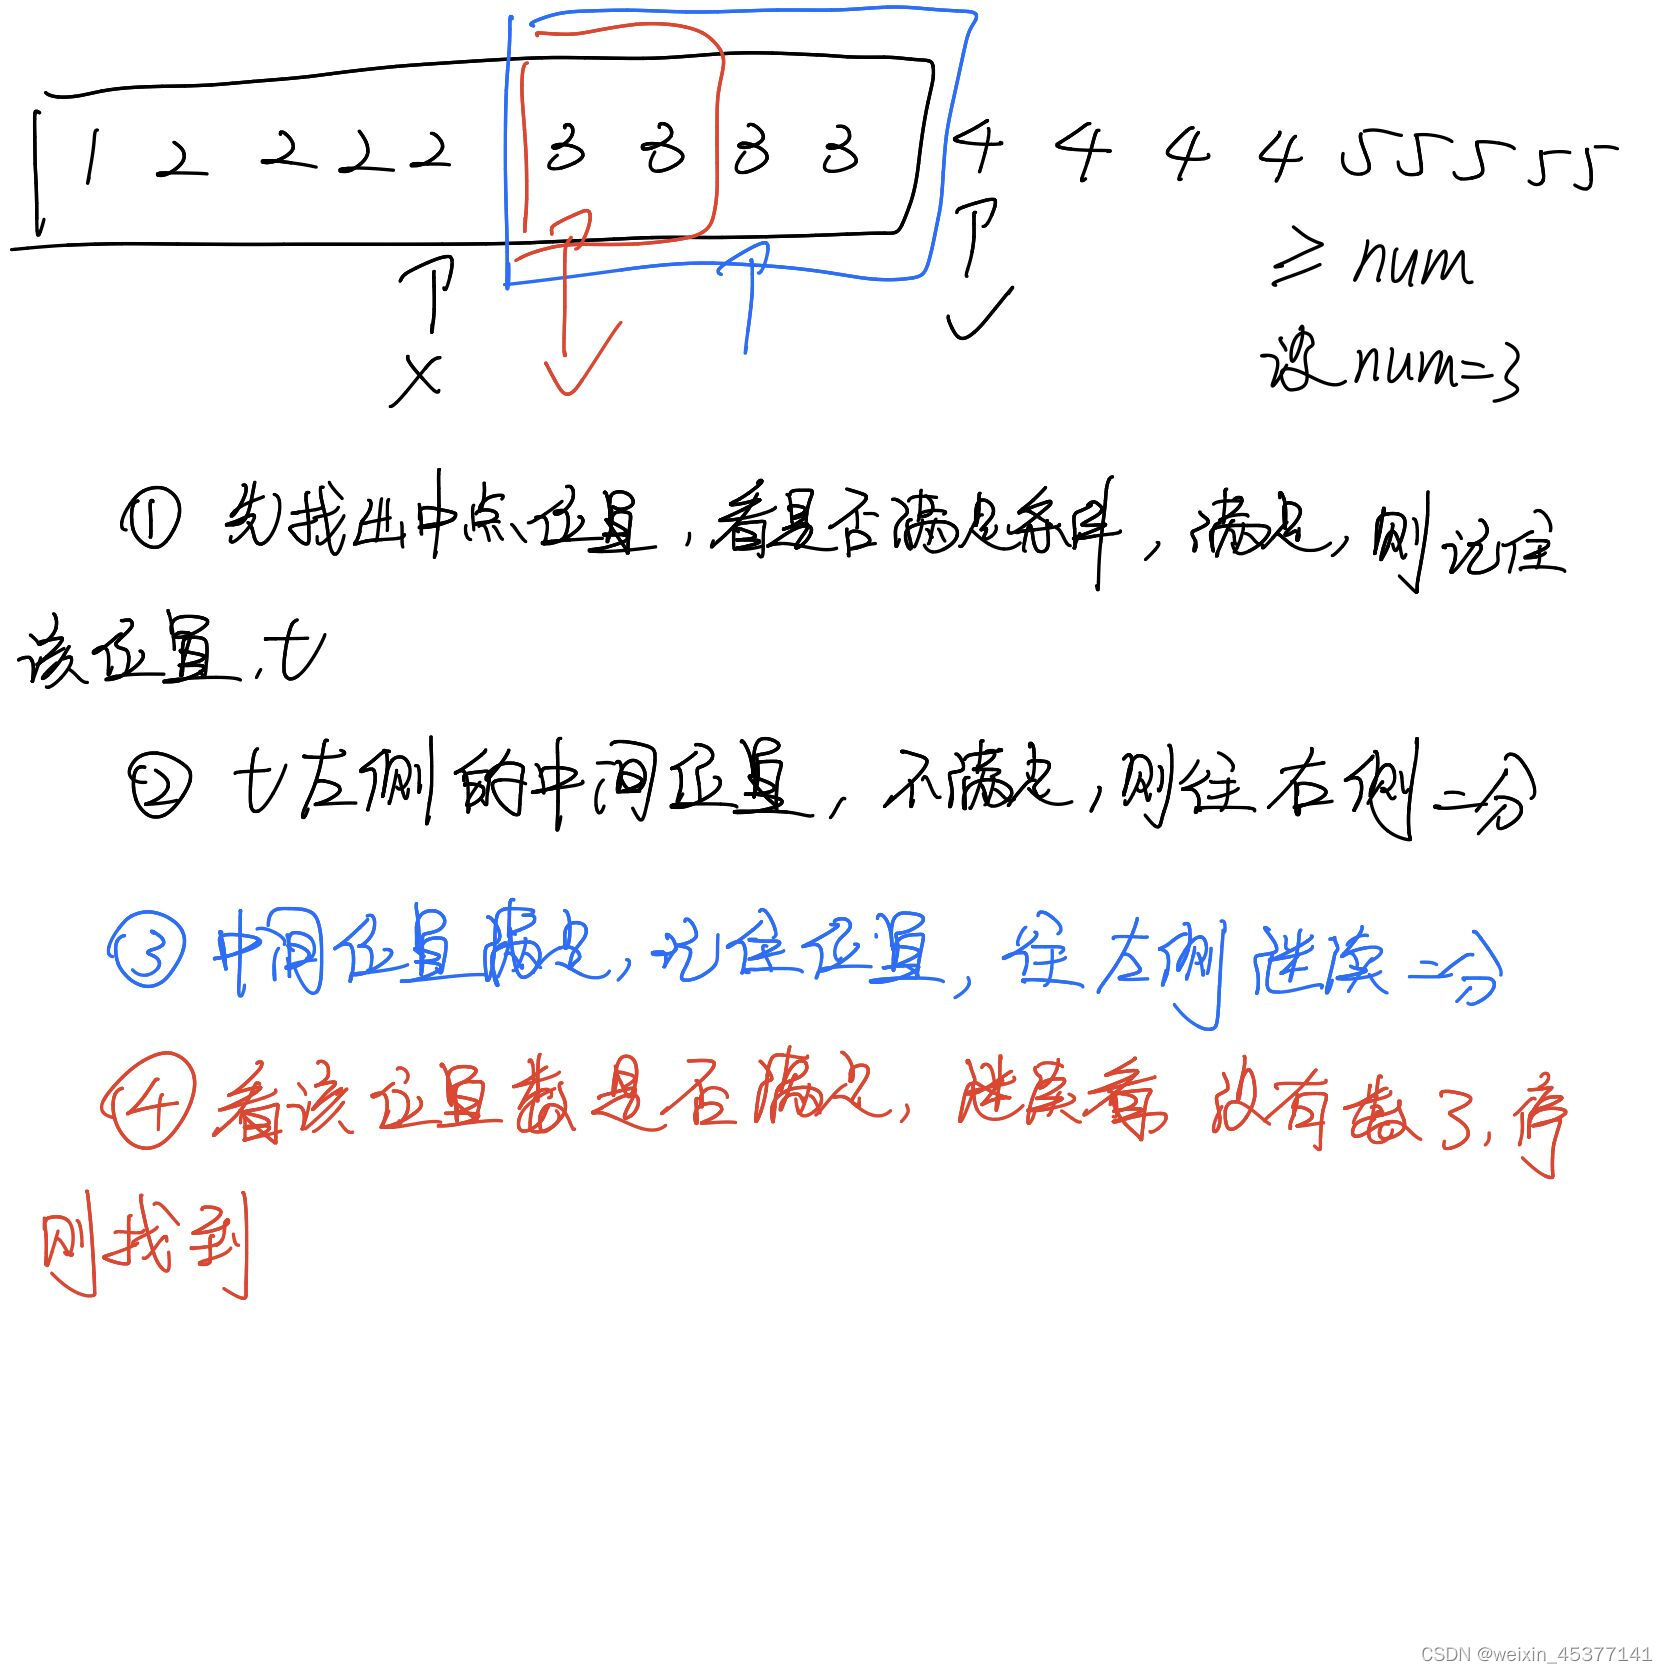 1 2 2 2 2 3 3 3 3 4 4 4 4 5 5 5 5 5
≥ num
X
设 num=3
① 先找出中点位置,看是否满足条件,满足,则记住
该位置,t
② t左侧的中间位置,不满足,则往右侧二分
③ 中间位置满足,记住位置,往左侧继续二分
④ 看该位置数是否满足,继续看 没有数了,停
则找到
CSDN @weixin_45377141